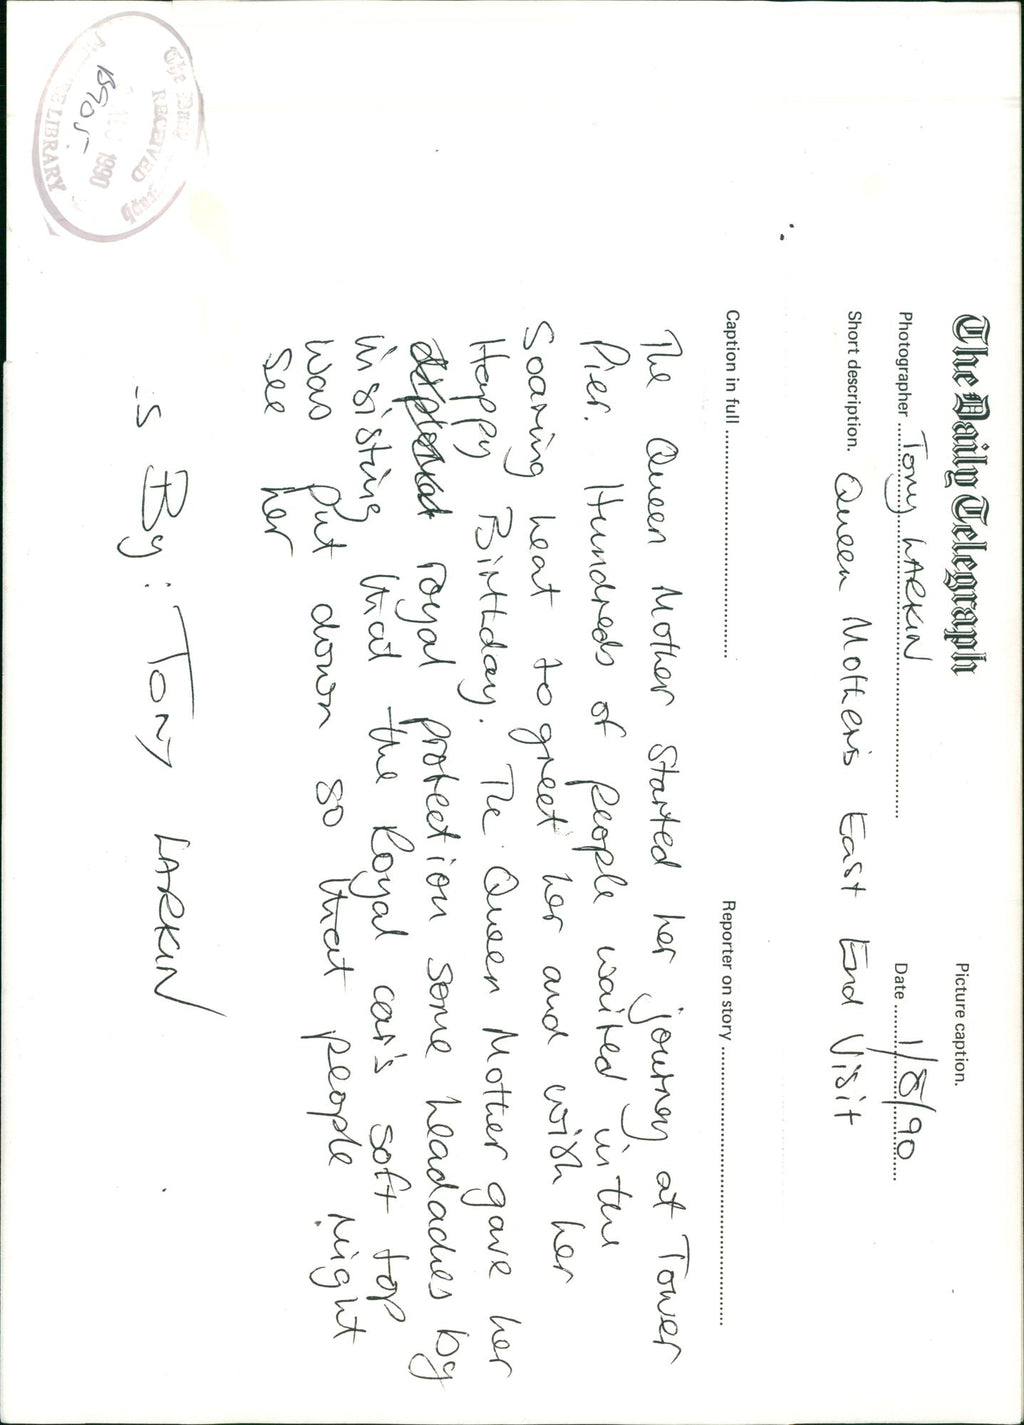 The Daily Telegraph
Picture caption.
Photographer Tony LARKIN
Date 1/8/90
Short description. Queen Mother's East End Visit
Caption in full
Reporter on story
The Queen Mother started her journey at Tower
Pier. Hundreds of people waited in the
Soaring heat to greet her and wish her
Happy Birthday. The Queen Mother gave her
royal protection some headaches by
insisting that the Royal car's soft top
was put down so that people might
see her
:s By: TONY LARKIN
The Daily
RECEIVED
1990
LIBRARY